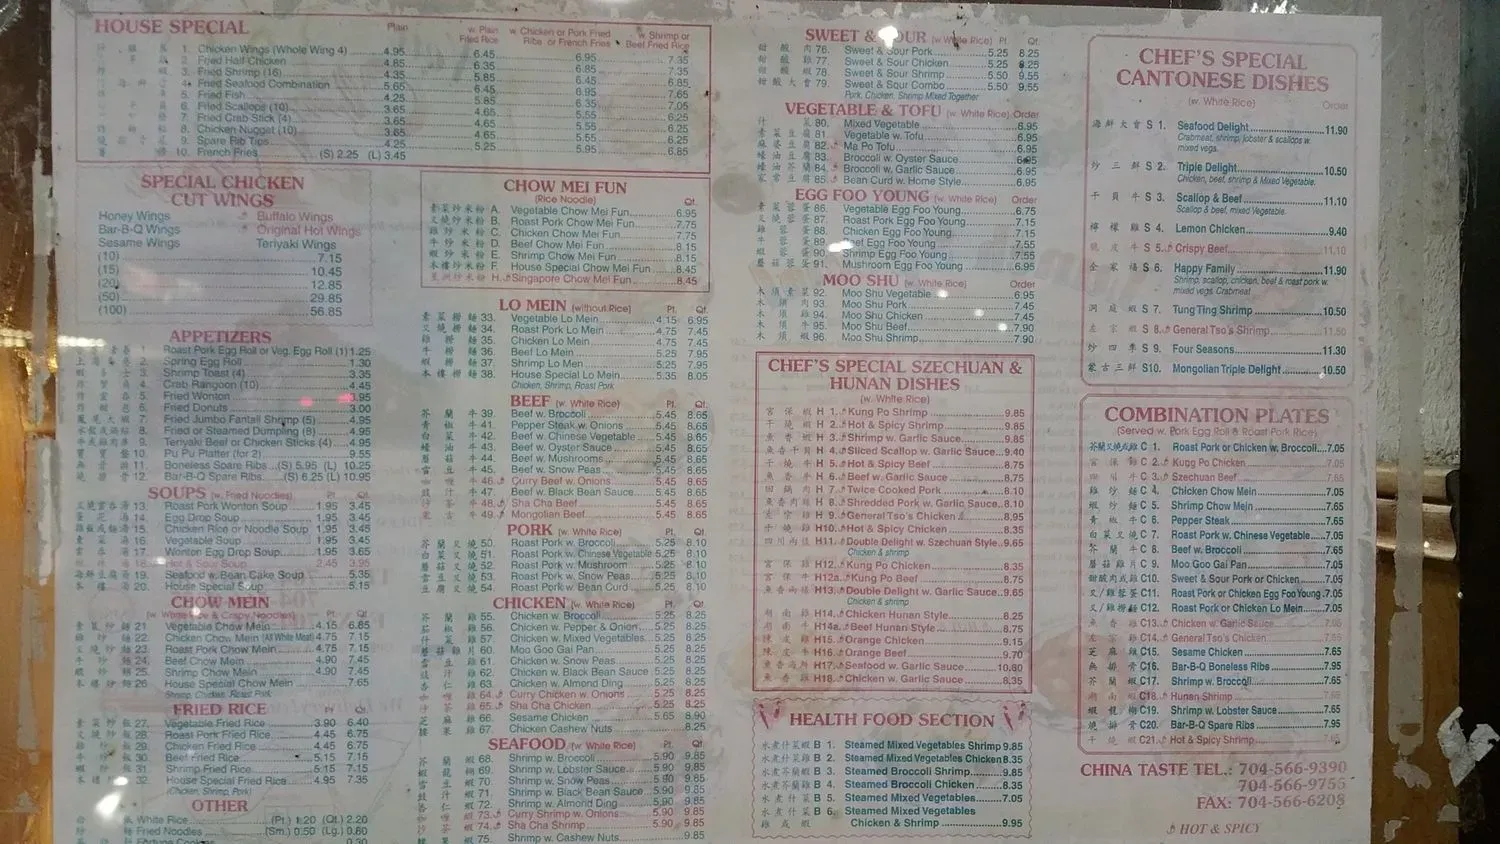 HOUSE SPECIAL
Plain
w. Plain Fried Rice
w. Chicken or Pork Fried Rice or French Fries
w. Shrimp or Beef Fried Rice
1. Chicken Wings (Whole Wing 4) 4.95 6.45 6.95 7.35
2. Fried Half Chicken 4.85 6.35 6.85 7.35
3. Fried Shrimp (16) 4.35 5.85 6.45 6.85
4. Fried Seafood Combination 5.65 6.45 6.95 7.65
5. Fried Fish 4.25 5.85 6.35 7.05
6. Fried Scallops (10) 3.65 4.65 5.55 6.25
7. Fried Crab Stick (4) 3.65 4.65 5.55 6.25
8. Chicken Nugget (10) 3.65 4.65 5.55 6.25
9. Spare Rib Tips 4.25 5.25 5.95 6.85
10. French Fries (S) 2.25 (L) 3.45
SPECIAL CHICKEN
CUT WINGS
Honey Wings Buffalo Wings
Bar-B-Q Wings Original Hot Wings
Sesame Wings Teriyaki Wings
(10) 7.15
(15) 10.45
(20) 12.85
(50) 29.85
(100) 56.85
APPETIZERS
1. Roast Pork Egg Roll or Veg. Egg Roll (1) 1.25
2. Spring Egg Roll 1.30
3. Shrimp Toast (4) 3.35
4. Crab Rangoon (10) 4.45
5. Fried Wonton 3.95
6. Fried Donuts 3.00
7. Fried Jumbo Fantail Shrimp (5) 4.95
8. Fried or Steamed Dumpling (8) 4.95
9. Teriyaki Beef or Chicken Sticks (4) 4.95
10. Pu Pu Platter (for 2) 9.55
11. Boneless Spare Ribs (S) 5.95 (L) 10.25
12. Bar-B-Q Spare Ribs (S) 6.25 (L) 10.95
SOUPS (w. Fried Noodles) Pt. Qt.
13. Roast Pork Wonton Soup 1.95 3.45
14. Egg Drop Soup 1.95 3.45
15. Chicken Rice or Noodle Soup 1.95 3.45
16. Vegetable Soup 1.95 3.45
17. Wonton Egg Drop Soup 1.95 3.65
18. Hot & Sour Soup 2.45 3.95
19. Seafood w. Bean Cake Soup 5.35
20. House Special Soup 5.15
CHOW MEIN
(w. White Rice & Crispy Noodles) Pt. Qt.
21. Vegetable Chow Mein 4.15 6.85
22. Chicken Chow Mein (All White Meat) 4.75 7.15
23. Roast Pork Chow Mein 4.75 7.15
24. Beef Chow Mein 4.90 7.45
25. Shrimp Chow Mein 4.90 7.45
26. House Special Chow Mein 7.65
Shrimp, Chicken, Roast Pork
FRIED RICE Pt. Qt.
27. Vegetable Fried Rice 3.90 6.40
28. Roast Pork Fried Rice 4.45 6.75
29. Chicken Fried Rice 4.45 6.75
30. Beef Fried Rice 5.15 7.15
31. Shrimp Fried Rice 5.15 7.15
32. House Special Fried Rice 4.95 7.35
(Chicken, Shrimp, Pork)
OTHER
White Rice (Pt.) 1.20 (Qt.) 2.20
Fried Noodles (Sm.) 0.50 (Lg.) 0.80
Fortune Cookies 0.30
CHOW MEI FUN
(Rice Noodle) Qt.
素菜炒米粉 A. Vegetable Chow Mei Fun 6.95
叉燒炒米粉 B. Roast Pork Chow Mei Fun 7.75
雞炒米粉 C. Chicken Chow Mei Fun 7.75
牛炒米粉 D. Beef Chow Mei Fun 8.15
蝦炒米粉 E. Shrimp Chow Mei Fun 8.15
本樓炒米粉 F. House Special Chow Mei Fun 8.45
星洲炒米粉 H. Singapore Chow Mei Fun 8.45
LO MEIN (without Rice) Pt. Qt.
素菜撈麵 33. Vegetable Lo Mein 4.15 6.95
叉燒撈麵 34. Roast Pork Lo Mein 4.75 7.45
雞撈麵 35. Chicken Lo Mein 4.75 7.45
牛撈麵 36. Beef Lo Mein 5.25 7.95
蝦撈麵 37. Shrimp Lo Mein 5.25 7.95
本樓撈麵 38. House Special Lo Mein 5.35 8.05
Chicken, Shrimp, Roast Pork
BEEF (w. White Rice) Pt. Qt.
芥蘭牛 39. Beef w. Broccoli 5.45 8.65
青椒牛 41. Pepper Steak w. Onions 5.45 8.65
白菜牛 42. Beef w. Chinese Vegetable 5.45 8.65
蠔油牛 43. Beef w. Oyster Sauce 5.45 8.65
蘑菇牛 44. Beef w. Mushrooms 5.45 8.65
雪豆牛 45. Beef w. Snow Peas 5.45 8.65
咖喱牛 46. Curry Beef w. Onions 5.45 8.65
豉汁牛 47. Beef w. Black Bean Sauce 5.45 8.65
沙茶牛 48. Sha Cha Beef 5.45 8.65
蒙古牛 49. Mongolian Beef 5.45 8.65
PORK (w. White Rice) Pt. Qt.
芥蘭叉燒 50. Roast Pork w. Broccoli 5.25 8.10
白菜叉燒 51. Roast Pork w. Chinese Vegetable 5.25 8.10
蘑菇叉燒 52. Roast Pork w. Mushroom 5.25 8.10
雪豆叉燒 53. Roast Pork w. Snow Peas 5.25 8.10
豆腐叉燒 54. Roast Pork w. Bean Curd 5.25 8.10
CHICKEN (w. White Rice) Pt. Qt.
芥蘭雞 55. Chicken w. Broccoli 5.25 8.25
56. Chicken w. Pepper & Onion 5.25 8.25
什菜雞 57. Chicken w. Mixed Vegetables 5.25 8.25
蘑菇雞片 60. Moo Goo Gai Pan 5.25 8.25
雪豆雞 61. Chicken w. Snow Peas 5.25 8.25
豉汁雞 62. Chicken w. Black Bean Sauce 5.25 8.25
杏仁雞 63. Chicken w. Almond Ding 5.25 8.25
咖喱雞 64. Curry Chicken w. Onions 5.25 8.25
沙茶雞 65. Sha Cha Chicken 5.25 8.25
芝麻雞 66. Sesame Chicken 5.65 8.90
腰果雞 67. Chicken Cashew Nuts 8.25
SEAFOOD (w. White Rice) Pt. Qt.
芥蘭蝦 68. Shrimp w. Broccoli 5.90 9.85
蝦龍糊 69. Shrimp w. Lobster Sauce 5.90 9.85
雪豆蝦 70. Shrimp w. Snow Peas 5.90 9.85
豉汁蝦 71. Shrimp w. Black Bean Sauce 5.90 9.85
杏仁蝦 72. Shrimp w. Almond Ding 5.90 9.85
咖喱蝦 73. Curry Shrimp w. Onions 5.90 9.85
沙茶蝦 74. Sha Cha Shrimp 5.90 9.85
腰果蝦 75. Shrimp w. Cashew Nuts 9.85
SWEET & SOUR (w. White Rice) Pt. Qt.
甜酸肉 76. Sweet & Sour Pork 5.25 8.25
甜酸雞 77. Sweet & Sour Chicken 5.25 8.25
甜酸蝦 78. Sweet & Sour Shrimp 5.50 9.55
甜酸大會 79. Sweet & Sour Combo 5.50 9.55
Pork, Chicken, Shrimp Mixed Together
VEGETABLE & TOFU (w. White Rice) Order
什菜 80. Mixed Vegetable 6.95
素菜豆腐 81. Vegetable w. Tofu 6.95
麻婆豆腐 82. Ma Po Tofu 6.95
蠔油豆腐 83. Broccoli w. Oyster Sauce 6.95
84. Broccoli w. Garlic Sauce 6.95
家常豆腐 85. Bean Curd w. Home Style 6.95
EGG FOO YOUNG (w. White Rice) Order
素菜蓉蛋 86. Vegetable Egg Foo Young 6.75
叉燒蓉蛋 87. Roast Pork Egg Foo Young 7.15
雞蓉蛋 88. Chicken Egg Foo Young 7.15
牛蓉蛋 89. Beef Egg Foo Young 7.55
蝦蓉蛋 90. Shrimp Egg Foo Young 7.55
蘑菇蓉蛋 91. Mushroom Egg Foo Young 6.95
MOO SHU (w. White Rice) Order
木須素菜 92. Moo Shu Vegetable 6.95
木須肉 93. Moo Shu Pork 7.45
木須雞 94. Moo Shu Chicken 7.45
木須牛 95. Moo Shu Beef 7.90
木須蝦 96. Moo Shu Shrimp 7.90
CHEF'S SPECIAL SZECHUAN &
HUNAN DISHES
(w. White Rice) Order
宮保蝦 H 1. Kung Po Shrimp 9.85
干燒蝦 H 2. Hot & Spicy Shrimp 9.85
魚香蝦 H 3. Shrimp w. Garlic Sauce 9.85
魚香干貝 H 4. Sliced Scallop w. Garlic Sauce 9.40
干燒牛 H 5. Hot & Spicy Beef 8.75
魚香牛 H 6. Beef w. Garlic Sauce 8.75
回鍋肉 H 7. Twice Cooked Pork 8.10
魚香肉絲 H 8. Shredded Pork w. Garlic Sauce 8.10
左宗雞 H 9. General Tso's Chicken 8.95
干燒雞 H10. Hot & Spicy Chicken 8.35
四川兩味 H11. Double Delight w. Szechuan Style 9.65
Chicken & shrimp
宮保雞 H12. Kung Po Chicken 8.35
宮保牛 H12a. Kung Po Beef 8.75
魚香兩樣 H13. Double Delight w. Garlic Sauce 9.65
Chicken & shrimp
湖南雞 H14. Chicken Hunan Style 8.25
湖南牛 H14a. Beef Hunan Style 8.75
陳皮雞 H15. Orange Chicken 9.15
陳皮牛 H16. Orange Beef 9.70
魚香海鮮 H17. Seafood w. Garlic Sauce 10.80
魚香雞 H18. Chicken w. Garlic Sauce 8.35
HEALTH FOOD SECTION
水煮什菜蝦 B 1. Steamed Mixed Vegetables Shrimp 9.85
水煮什菜雞 B 2. Steamed Mixed Vegetables Chicken 8.35
水煮芥蘭蝦 B 3. Steamed Broccoli Shrimp 9.85
水煮芥蘭雞 B 4. Steamed Broccoli Chicken 8.35
水煮什菜 B 5. Steamed Mixed Vegetables 7.05
水煮什菜 B 6. Steamed Mixed Vegetables
雞或蝦 Chicken & Shrimp 9.95
CHEF'S SPECIAL
CANTONESE DISHES
(w. White Rice) Order
海鮮大會 S 1. Seafood Delight 11.90
Crabmeat, shrimp, lobster & scallops w. mixed vegs.
炒三鮮 S 2. Triple Delight 10.50
Chicken, beef, shrimp & Mixed Vegetable.
干貝牛 S 3. Scallop & Beef 11.10
Scallop & beef, mixed Vegetable.
檸檬雞 S 4. Lemon Chicken 9.40
脆皮牛 S 5. Crispy Beef 11.10
全家福 S 6. Happy Family 11.90
Shrimp, scallop, chicken, beef & roast pork w. mixed vegs. Crabmeat
洞庭蝦 S 7. Tung Ting Shrimp 10.50
左宗蝦 S 8. General Tso's Shrimp 11.50
炒四季 S 9. Four Seasons 11.30
蒙古三鮮 S10. Mongolian Triple Delight 10.50
COMBINATION PLATES
(Served w. Pork Egg Roll & Roast Pork Rice)
芥蘭叉燒或雞 C 1. Roast Pork or Chicken w. Broccoli 7.05
宮保雞 C 2. Kung Po Chicken 7.05
四川牛 C 3. Szechuan Beef 7.65
雞炒麵 C 4. Chicken Chow Mein 7.05
蝦炒麵 C 5. Shrimp Chow Mein 7.05
青椒牛 C 6. Pepper Steak 7.65
白菜叉燒 C 7. Roast Pork w. Chinese Vegetable 7.05
芥蘭牛 C 8. Beef w. Broccoli 7.65
蘑菇雞片 C 9. Moo Goo Gai Pan 7.05
甜酸肉或雞 C10. Sweet & Sour Pork or Chicken 7.05
叉/雞蓉蛋 C11. Roast Pork or Chicken Egg Foo Young 7.05
叉/雞撈麵 C12. Roast Pork or Chicken Lo Mein 7.05
魚香雞 C13. Chicken w. Garlic Sauce 7.05
左宗雞 C14. General Tso's Chicken 7.65
芝麻雞 C15. Sesame Chicken 7.65
無排骨 C16. Bar-B-Q Boneless Ribs 7.95
芥蘭蝦 C17. Shrimp w. Broccoli 7.65
湖南蝦 C18. Hunan Shrimp 7.65
蝦龍糊 C19. Shrimp w. Lobster Sauce 7.65
燒排骨 C20. Bar-B-Q Spare Ribs 7.95
干燒蝦 C21. Hot & Spicy Shrimp 7.65
CHINA TASTE TEL.: 704-566-9390
704-566-9755
FAX: 704-566-6208
HOT & SPICY